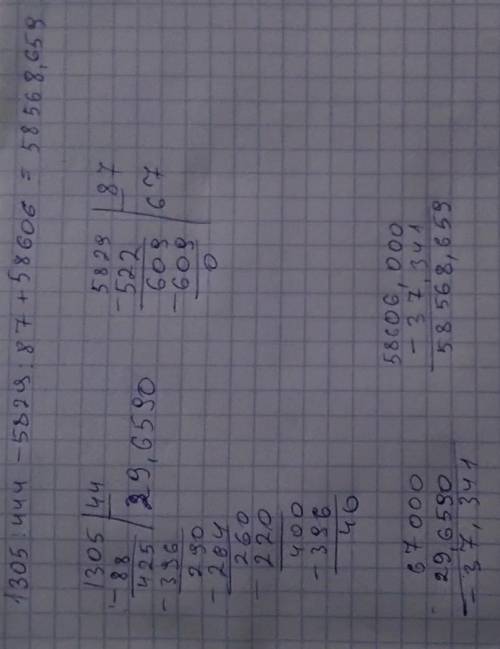 1305:444 -5829:87+58606 = 58568,659
1305 |44
-88 29,6590
425
-396
290
-264
260
-220
400
-396
40
5829 |87
-522 67
609
-609
0
67 000
29,6590
-37,341
58606,000
-37,341
58568,659